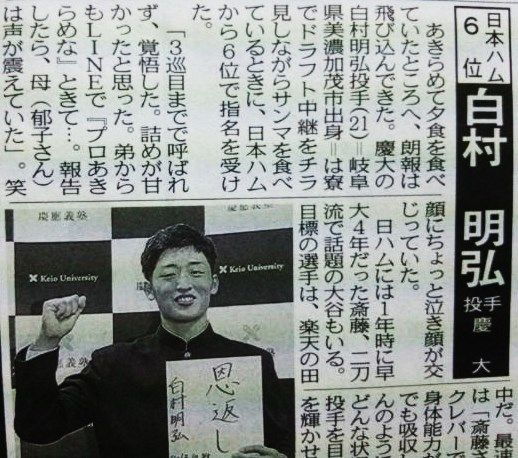 日本ハム
6位
白村 明弘
投手 慶大
あきらめて夕食を食べ
ていたところへ、朗報は
飛び込んできた。慶大の
白村明弘投手(21)=岐阜
県美濃加茂市出身=は寮
でドラフト中継をチラ
見しながらサンマを食べ
ているときに、日本ハム
から6位で指名を受け
た。
「3巡目までで呼ばれ
ず、覚悟した。詰めが甘
かったと思った。弟から
もLINEで『プロあき
らめな』ときて…。報告
したら、母(郁子さん)
は声が震えていた」。笑
顔にちょっと泣き顔が交
じっていた。
日ハムには1年時に早
大4年だった斎藤、二刀
流で話題の大谷もいる。
目標の選手は、楽天の田
中だ。最速
は「斎藤さ
クレバーで
身体能力が
でも吸収し
んのよう
どんな状
投手を目
を輝かせ
慶應義塾
Keio University
Keio University
恩返し
白村明弘